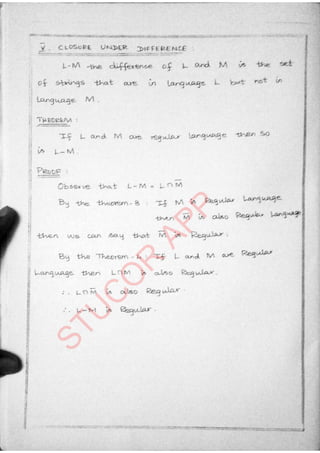 V. CLOSURE UNDER DIFFERENCE :
L-M the difference of L and M is the set
of strings that are in language L but not in
language M.
THEOREM :
If L and M are regular language then so
is L-M.
PROOF :
Observe that L-M = L∩M̅
By the theorem-3 : If M is Regular Language
then M̅ is also Regular Language
then we can say that M̅ is Regular;
By the Theorem-4 : If L and M are Regular
Language then L∩M is also Regular.
∴ L∩M̅ is also Regular.
∴ L-M is Regular.
STUCOR APP